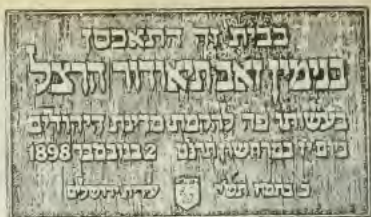 בבית זה התאכסן
בנימין זאב תיאודור הרצל
בעשותו פה להקמת מדינת היהודים
ביום י״ז במרחשון תרנ״ט 2 בנובמבר 1898
כ׳ בתמוז עירית ירושלים